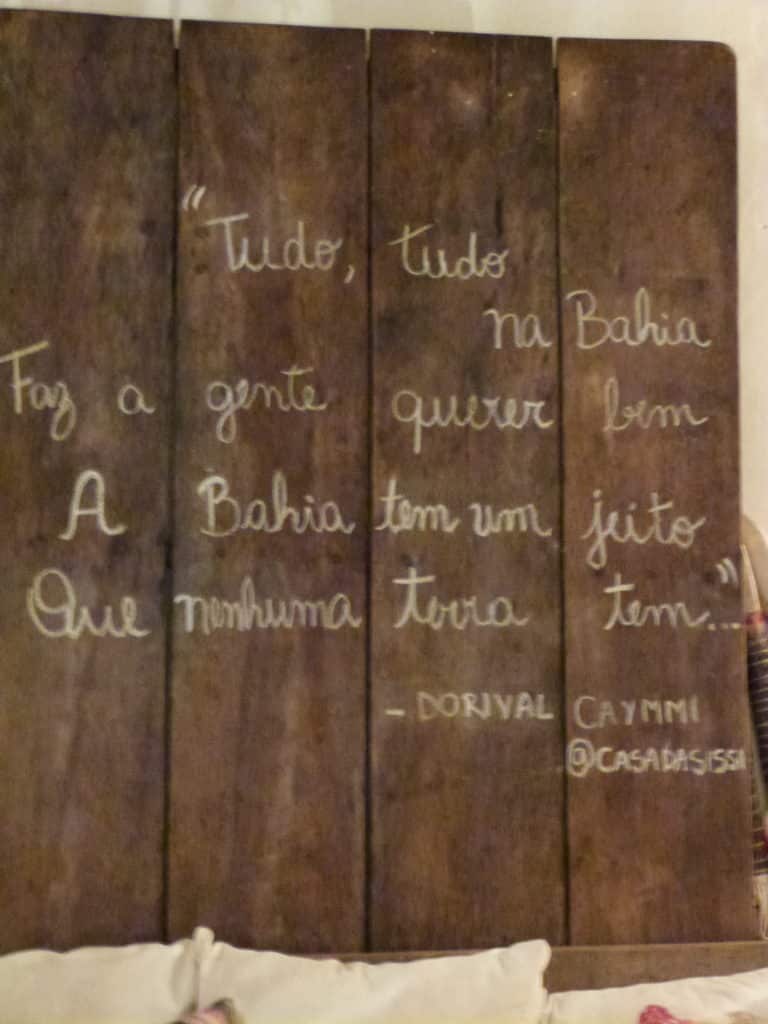 "Tudo, tudo
na Bahia
Faz a gente querer bem
A Bahia tem um jeito
Que nenhuma terra tem..."
- DORIVAL CAYMMI
@CASADASISSI